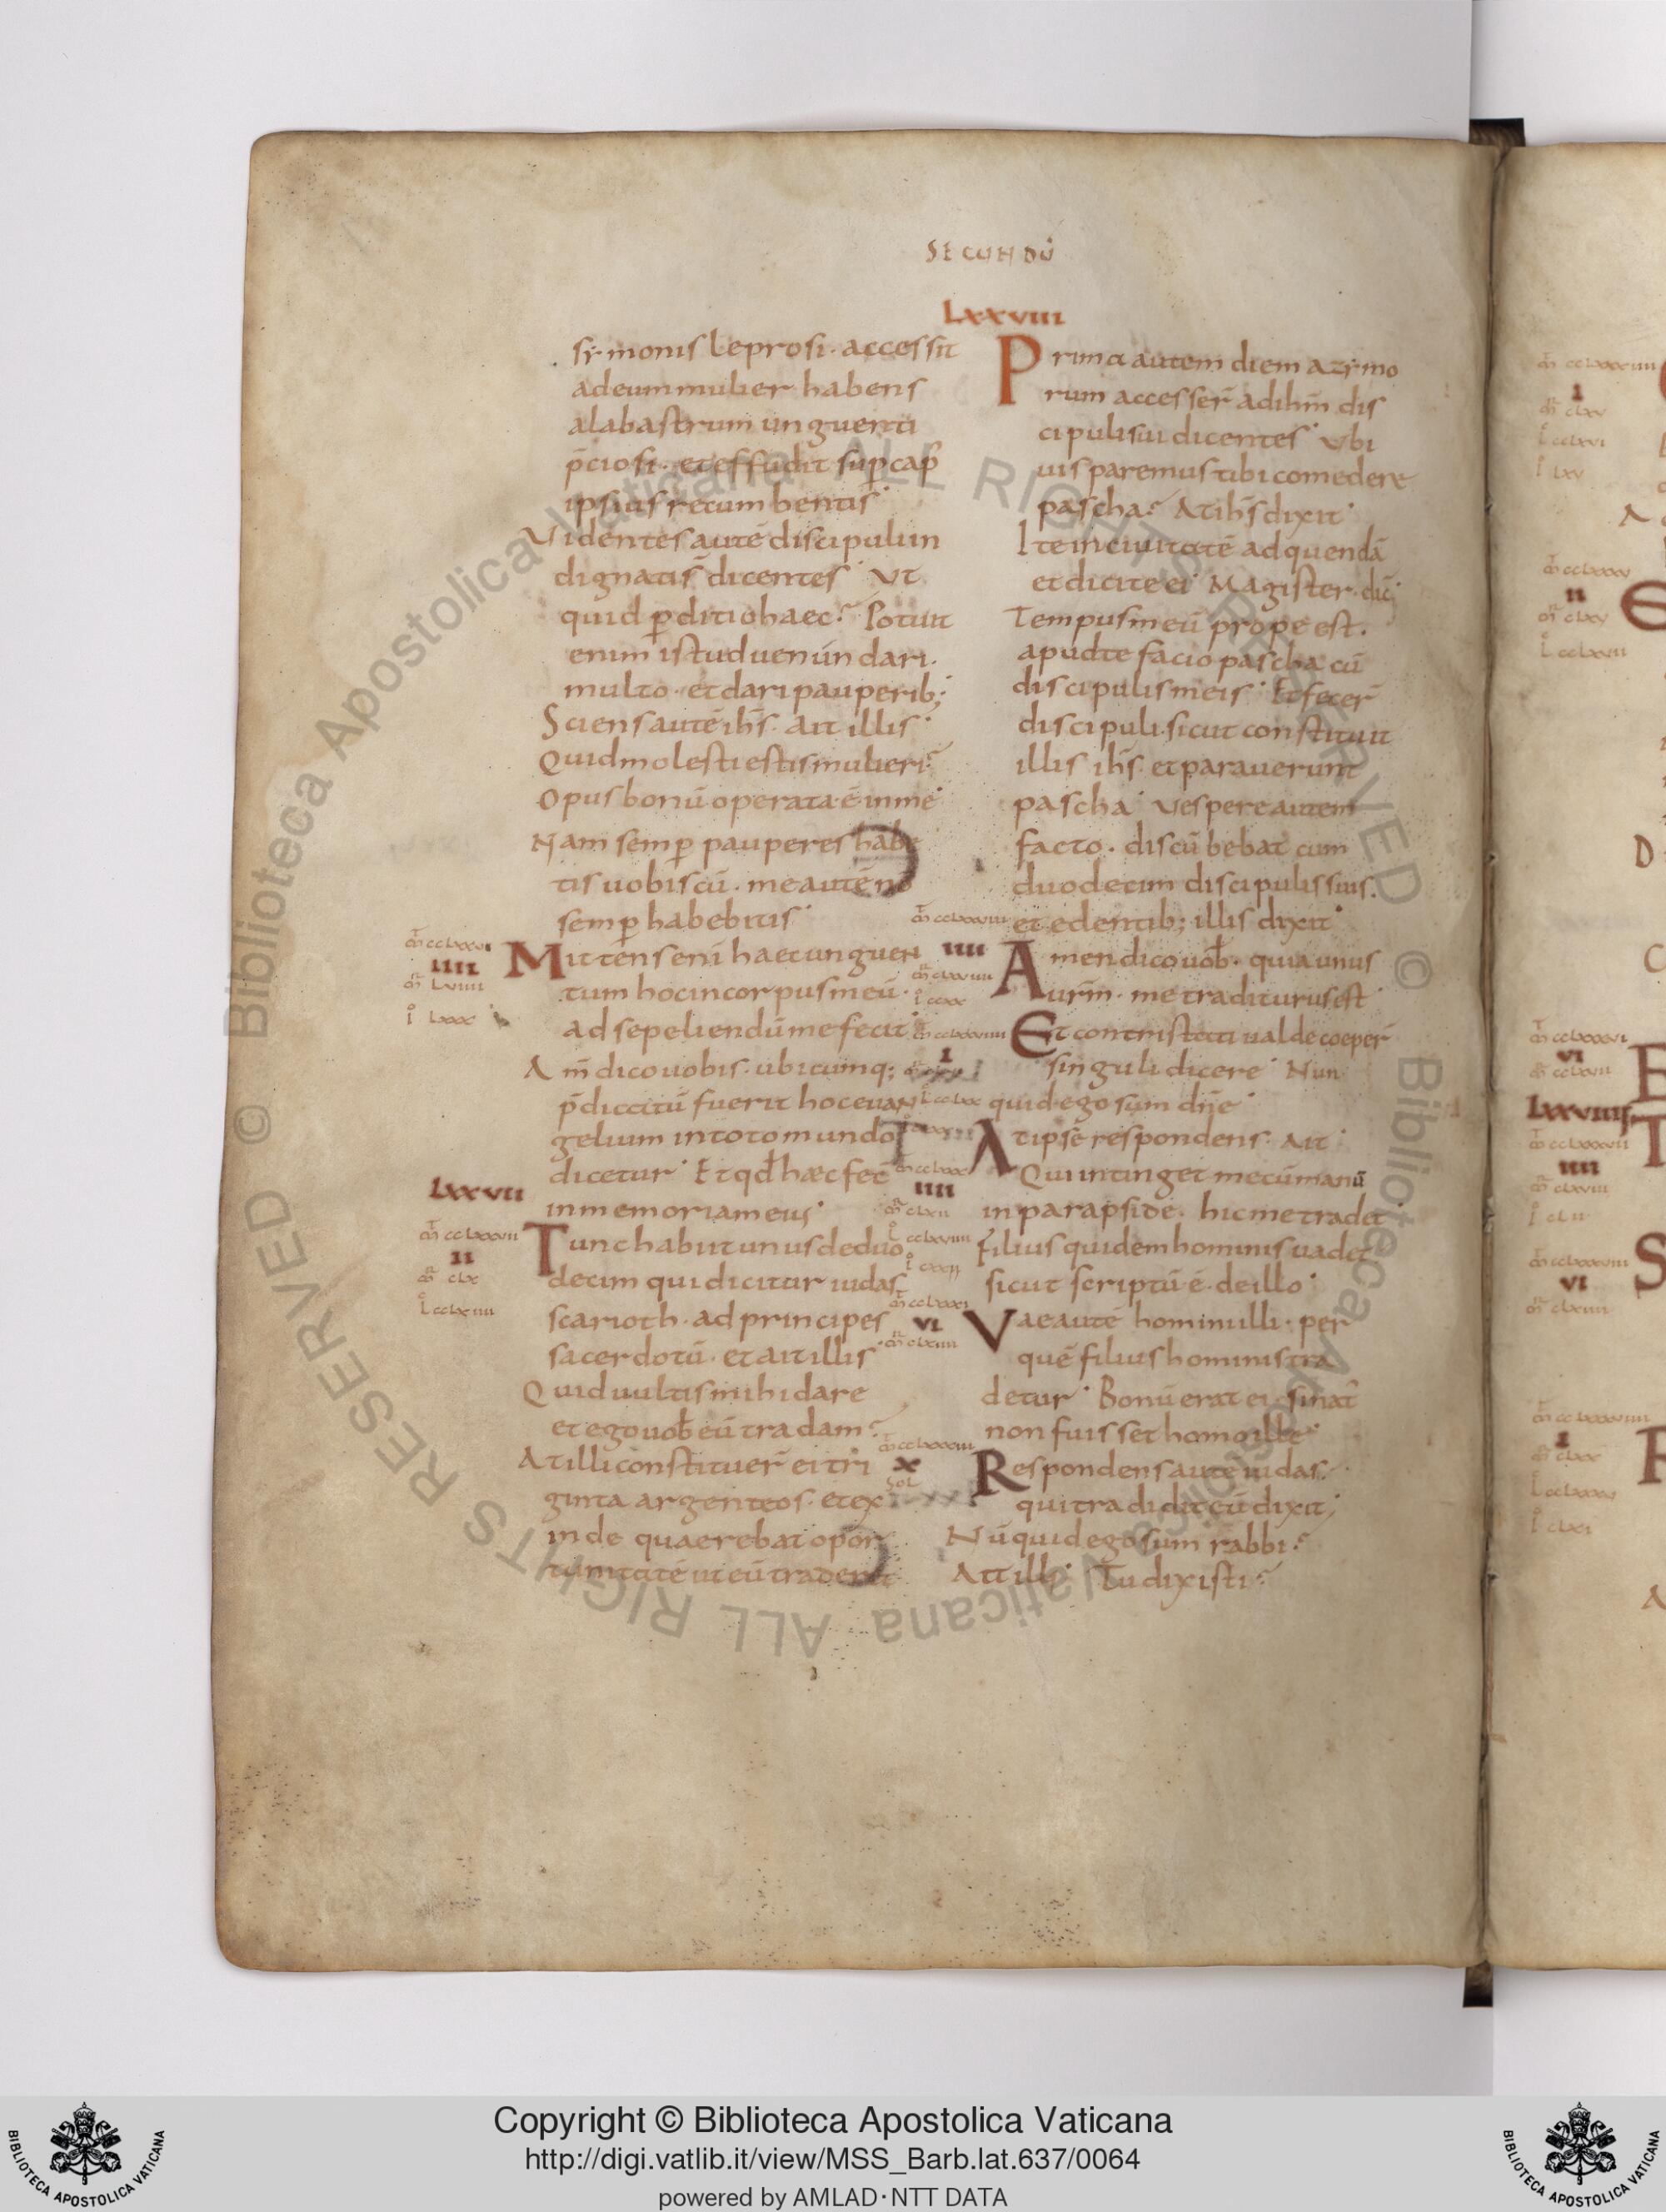 SECUNDŪ
sẏmonis leprosi · accessit
ad eum mulier habens
alabastrum unguenti
p̄ciosi · et effudit sup̱ cap̄
ipsius recumbentis·
Videntes autē discipuli in
dignatis̄ dicentes· Ut
quid p̱ditio haec? Potuit
enim istud uenundari·
multo · et dari pauperib;
Sciens autē ihs̄ · ait illis·
Quid molesti estis mulieri?
Opus bonū operata ē in me·
Nam semp̱ pauperes habe
tis uobiscū · me autē nō
semp̱ habebitis·
IIII
Mittens eni haec unguen
tum hoc in corpus meū·
ad sepeliendū me fecit·
Am̄ dico uobis · ubicumq;
p̄dicatū fuerit hoc euan
gelium in toto mundo
dicetur· Et qd̄ haec fec̄
in memoriam eius·
LXXVII
II
Tunc habiit unus de duo
decim qui dicitur iudas
scarioth · ad principes
sacerdotū · et ait illis·
Quid uultis mihi dare
et ego uob̄ eū tradam?
At illi constituer̄ ei tri
ginta argenteos · et ex
inde quaerebat opor
tunitatē ut eū traderet
LXXVIII
Prima autem diem azẏmo
rum accesser̄ ad ihm̄ dis
cipuli sui dicentes· Ubi
uis paremus tibi comedere
pascha? At ihs̄ dixit·
Ite in ciuitatē ad quendā
et dicite ei· Magister · dic̄;
Tempus meū prope est·
apud te facio pascha cū
discipulis meis· Et fecer̄
discipuli · sicut constituit
illis ihs̄ · et parauerunt
pascha· Vespere autem
facto · discūbebat cum
duodecim discipulis suis·
et edentib; illis dixit·
IIII
Amen dico uob̄ · quia unus
urm̄ · me traditurus est·
I
Et contristati ualde coeper̄
singuli dicere· Nun
quid ego sum dn̄e·
At ipse respondens · Ait·
IIII
Qui intinget mecū manū
in parapside · hic me tradet·
Filius quidem hominis uadet
sicut scriptū ē · de illo·
VI
Vae autē homini illi · per
quē filius hominis tra
detur· Bonū erat ei · si nat̄
non fuisset homo ille·
X
SOL
Respondens autē iudas·
qui tradidit eū dixit;
Nūquid ego sum rabbi?
Ait illi· Tu dixisti
Copyright © Biblioteca Apostolica Vaticana
http://digi.vatlib.it/view/MSS_Barb.lat.637/0064
powered by AMLAD·NTT DATA